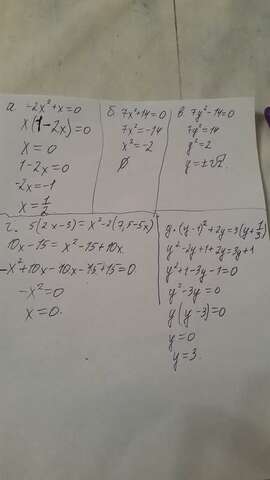 а. -2x²+x=0
x(1-2x)=0
x=0
1-2x=0
-2x=-1
x=1/2
б. 7x²+14=0
7x²=-14
x²=-2
∅
в. 7y²-14=0
7y²=14
y²=2
y=±√2.
г. 5(2x-3)=x²-2(7,5-5x)
10x-15=x²-15+10x
-x²+10x-10x-15+15=0
-x²=0
x=0.
д. (y-1)²+2y=3(y+1/3)
y²-2y+1+2y=3y+1
y²+1-3y-1=0
y²-3y=0
y(y-3)=0
y=0
y=3.